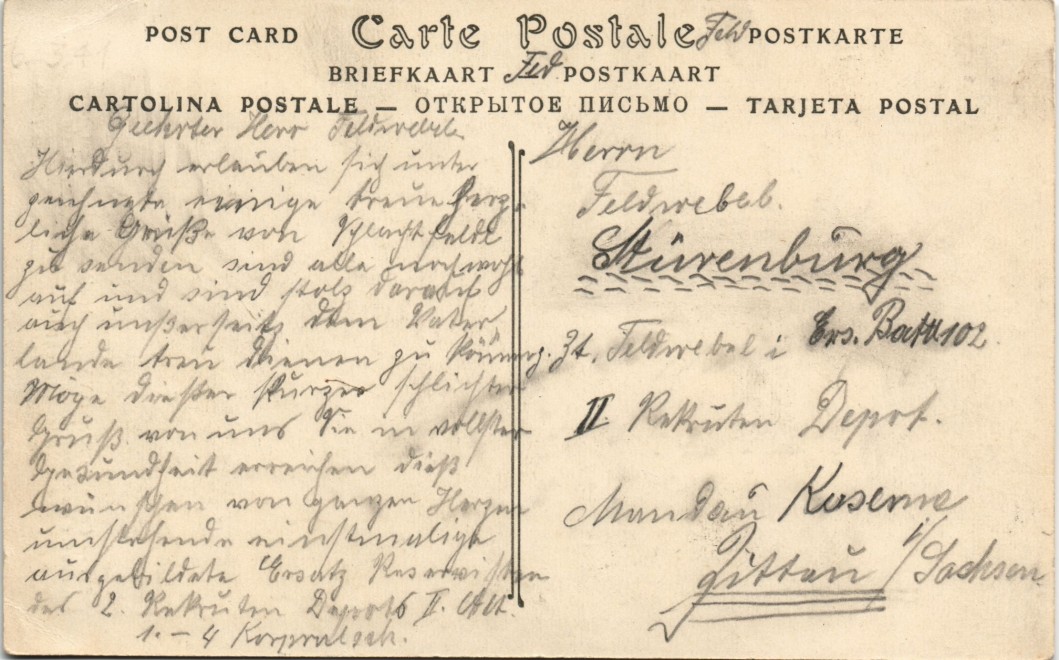 POST CARD Carte Postale Feld POSTKARTE
BRIEFKAART Feld POSTKAART
CARTOLINA POSTALE — ОТКРЫТОЕ ПИСЬМО — TARJETA POSTAL
Geehrter Herr Feldwebel.
Hierdurch erlauben sich unter
zeichnete einige treue herz-
liche Grüße von Schlachtfelde
zu senden sind alle noch wohl
auf und sind stolz darauf
auch unßerseits dem Vater,
lande treu dienen zu können.
Möge dießer kurzer schlichter
Gruß von uns Sie in vollster
Gesundheit erreichen dieß
wünschen von ganzen Herzen
umstehende einstmalige
ausgebildete Ersatz Reservisten
des 2. Rekruten Depots II. Abt.
1. – 4 Korpralsch.
Herrn
Feldwebel.
Stürenburg
z. Zt. Feldwebel i Ers. Batl. 102
II Rekruten Depot.
Mandau Kaserne
Zittau i/Sachsen